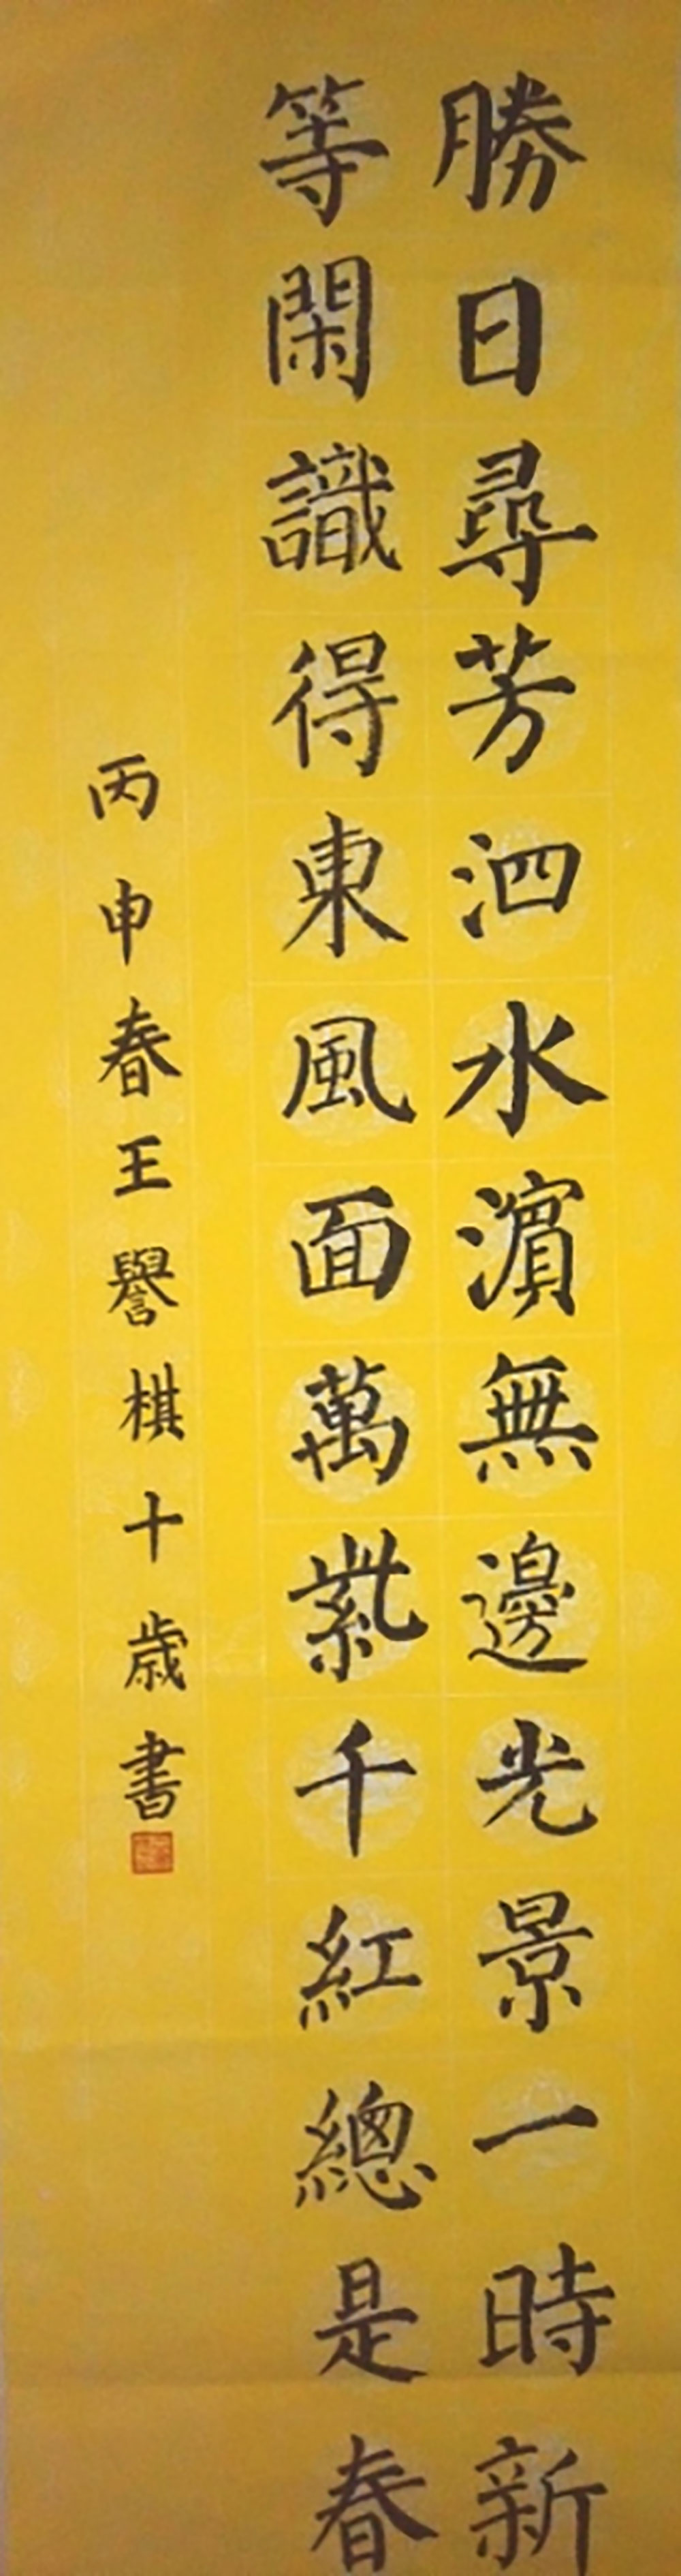 勝日尋芳泗水濱無邊光景一時新
等閑識得東風面萬紫千紅總是春
丙申春王譽棋十歲書